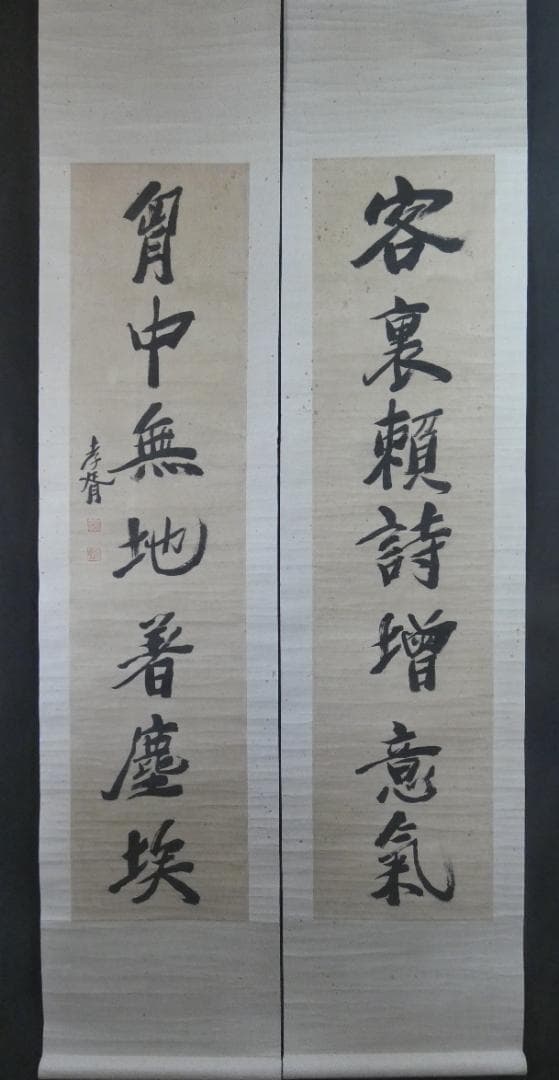 客裏賴詩增意氣
胷中無地著塵埃
孝胥